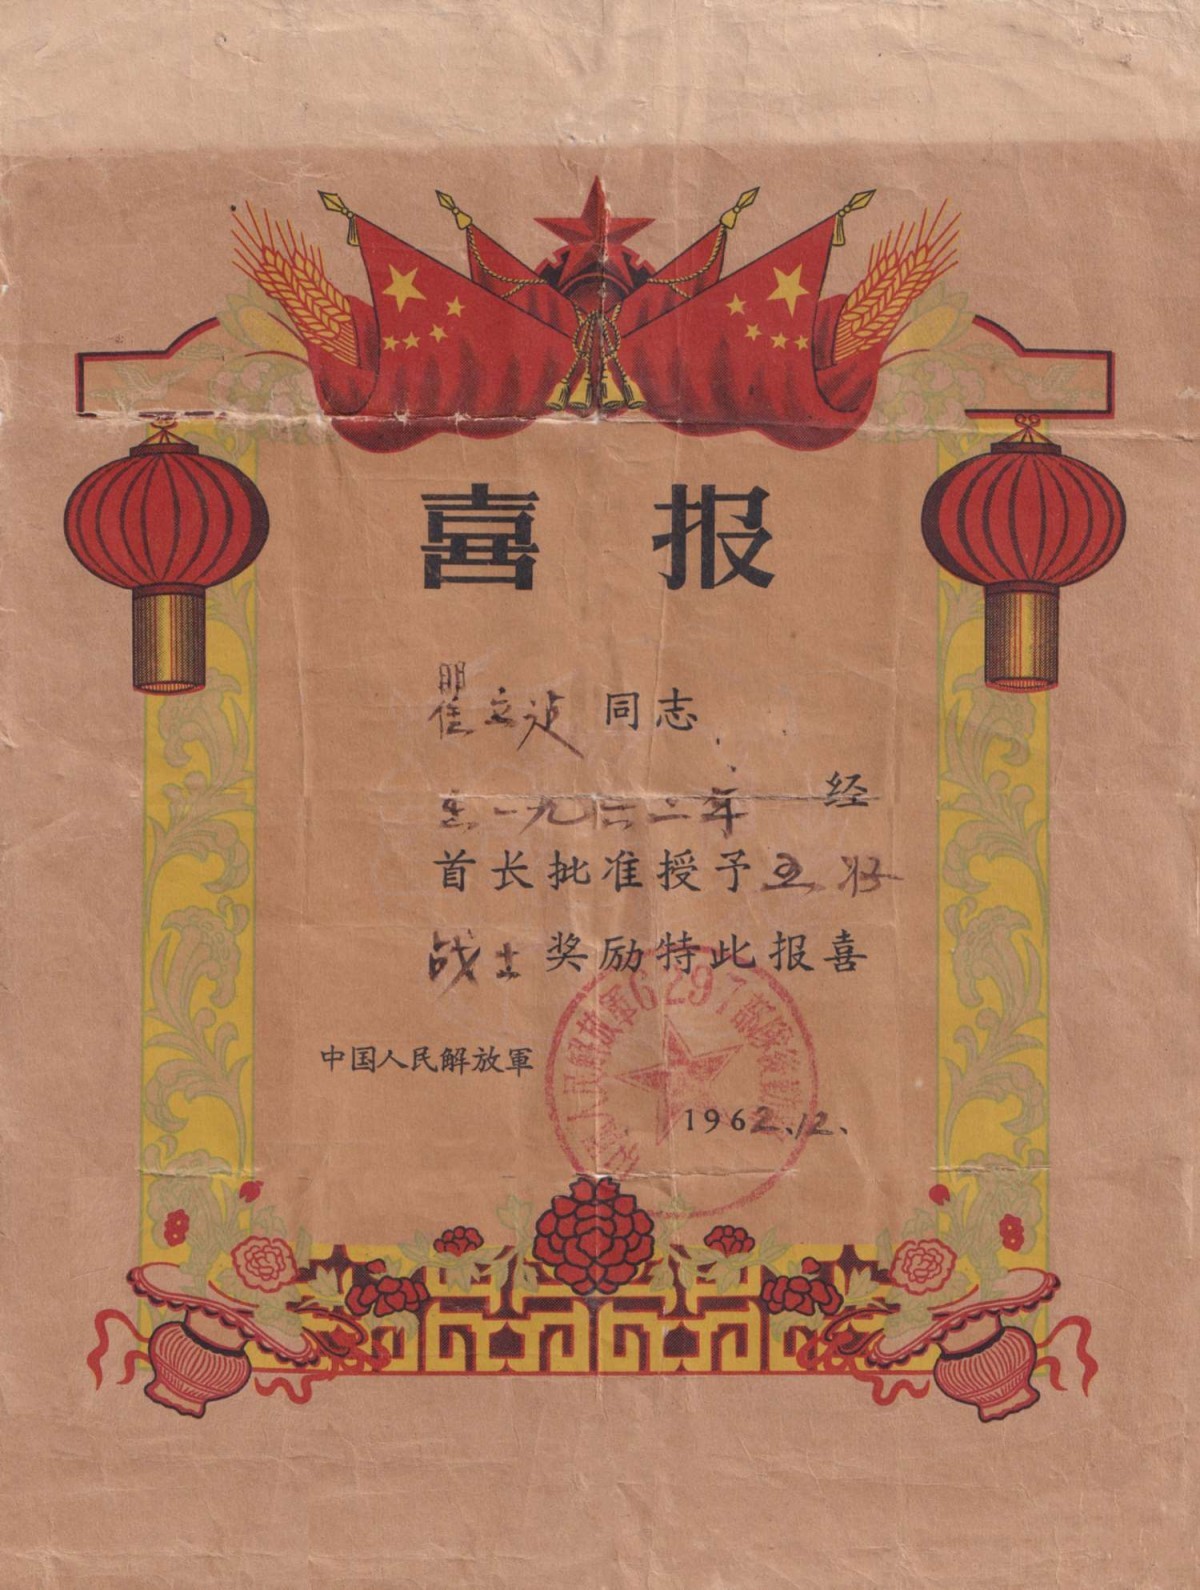 喜报
瞿立　同志
在一九六二年　经
首长批准授予五好
战士奖励特此报喜
中国人民解放軍
1962.12.
中國人民解放軍6297部隊後勤